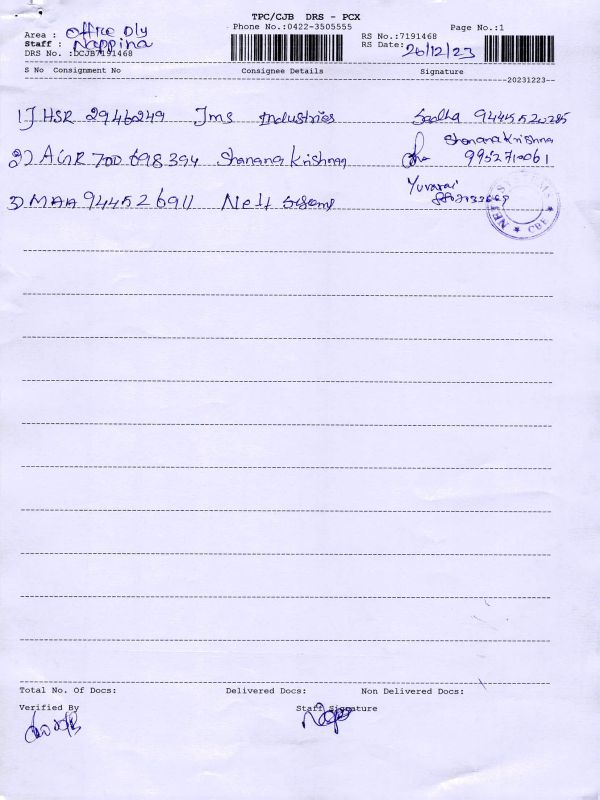 TPC/CJB DRS - PCX
Phone No.:0422-3505555 Page No.:1
Area : office Dly RS No.:7191468
Staff : Nappina RS Date: 26/12/23
DRS No. :DCJB7191468
S No Consignment No Consignee Details Signature
20231223
1) HSR 2946249 Jms Industries Sadha
2) AGR 700 698 394 Sharana Krishnan Sharana Krishna 9952710061
3) MAA 944526911 Nett Yuvaraj
CBE
Total No. Of Docs: Delivered Docs: Non Delivered Docs:
Verified By Staff Signature